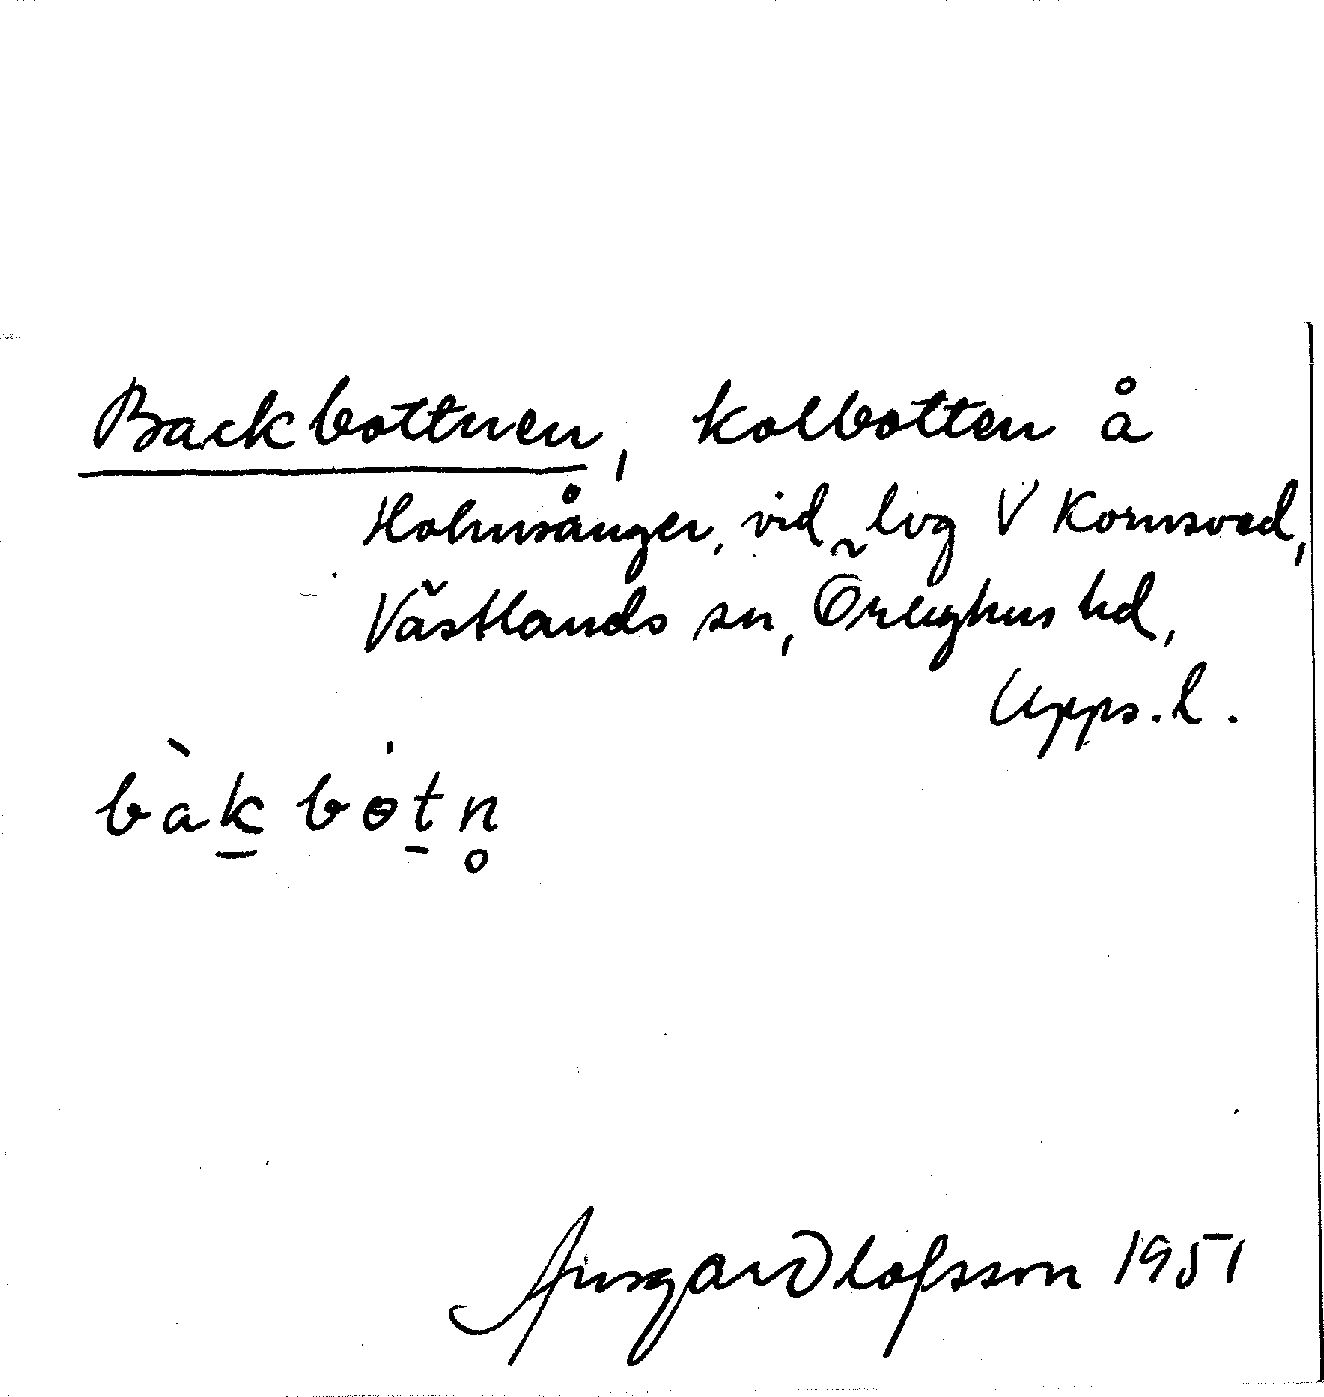 Backbottnen, kolbotten å
Holmsånger, vid lvg V Kornsved,
Västlands sn, Örbyhus hd,
Upps. l.
bàk bòtn̥
Ansgar Olofsson 1951